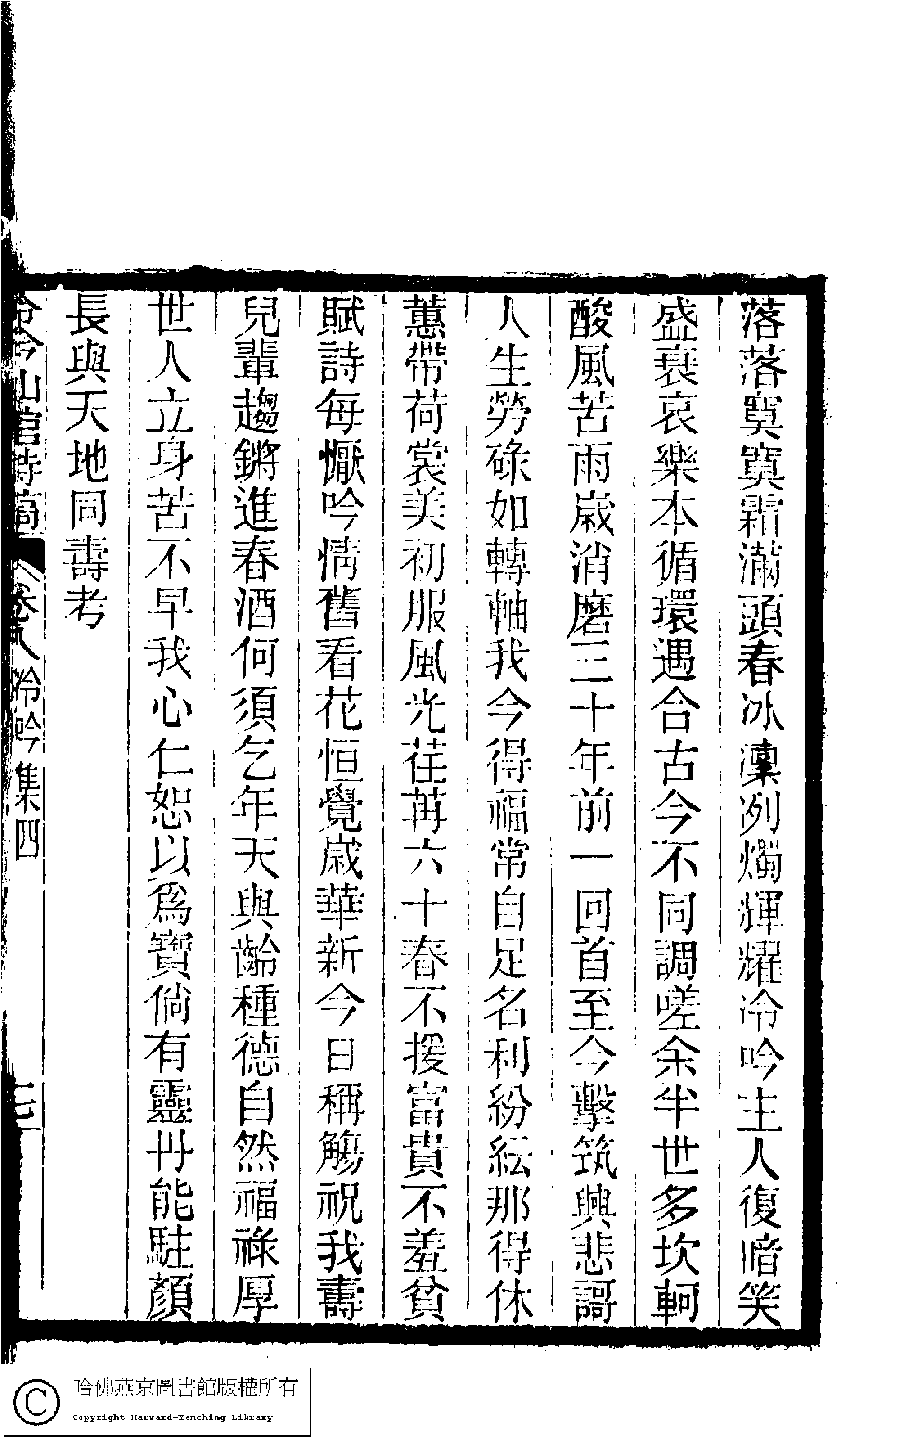 落落寞寞霜滿頭春冰凜冽燭輝耀冷吟主人復喑笑
盛衰哀樂本循環遇合古今不同調嗟余半世多坎軻
酸風苦雨歲消磨三十年前一回首至今擊筑興悲謌
人生勞碌如轉軸我今得福常自足名利紛紜那得休
蕙帶荷裳美初服風光荏苒六十春不援富貴不羞貧
賦詩每慨吟情舊看花恒覺歲華新今日稱觴祝我壽
兒輩趨鏘進春酒何須乞年天與齡種德自然福祿厚
世人立身苦不早我心仁恕以爲寶倘有靈丹能駐顏
長與天地同壽考
冷吟山館詩稿 卷八冷吟集四
哈佛燕京圖書館版權所有
Copyright Harvard-Yenching Library